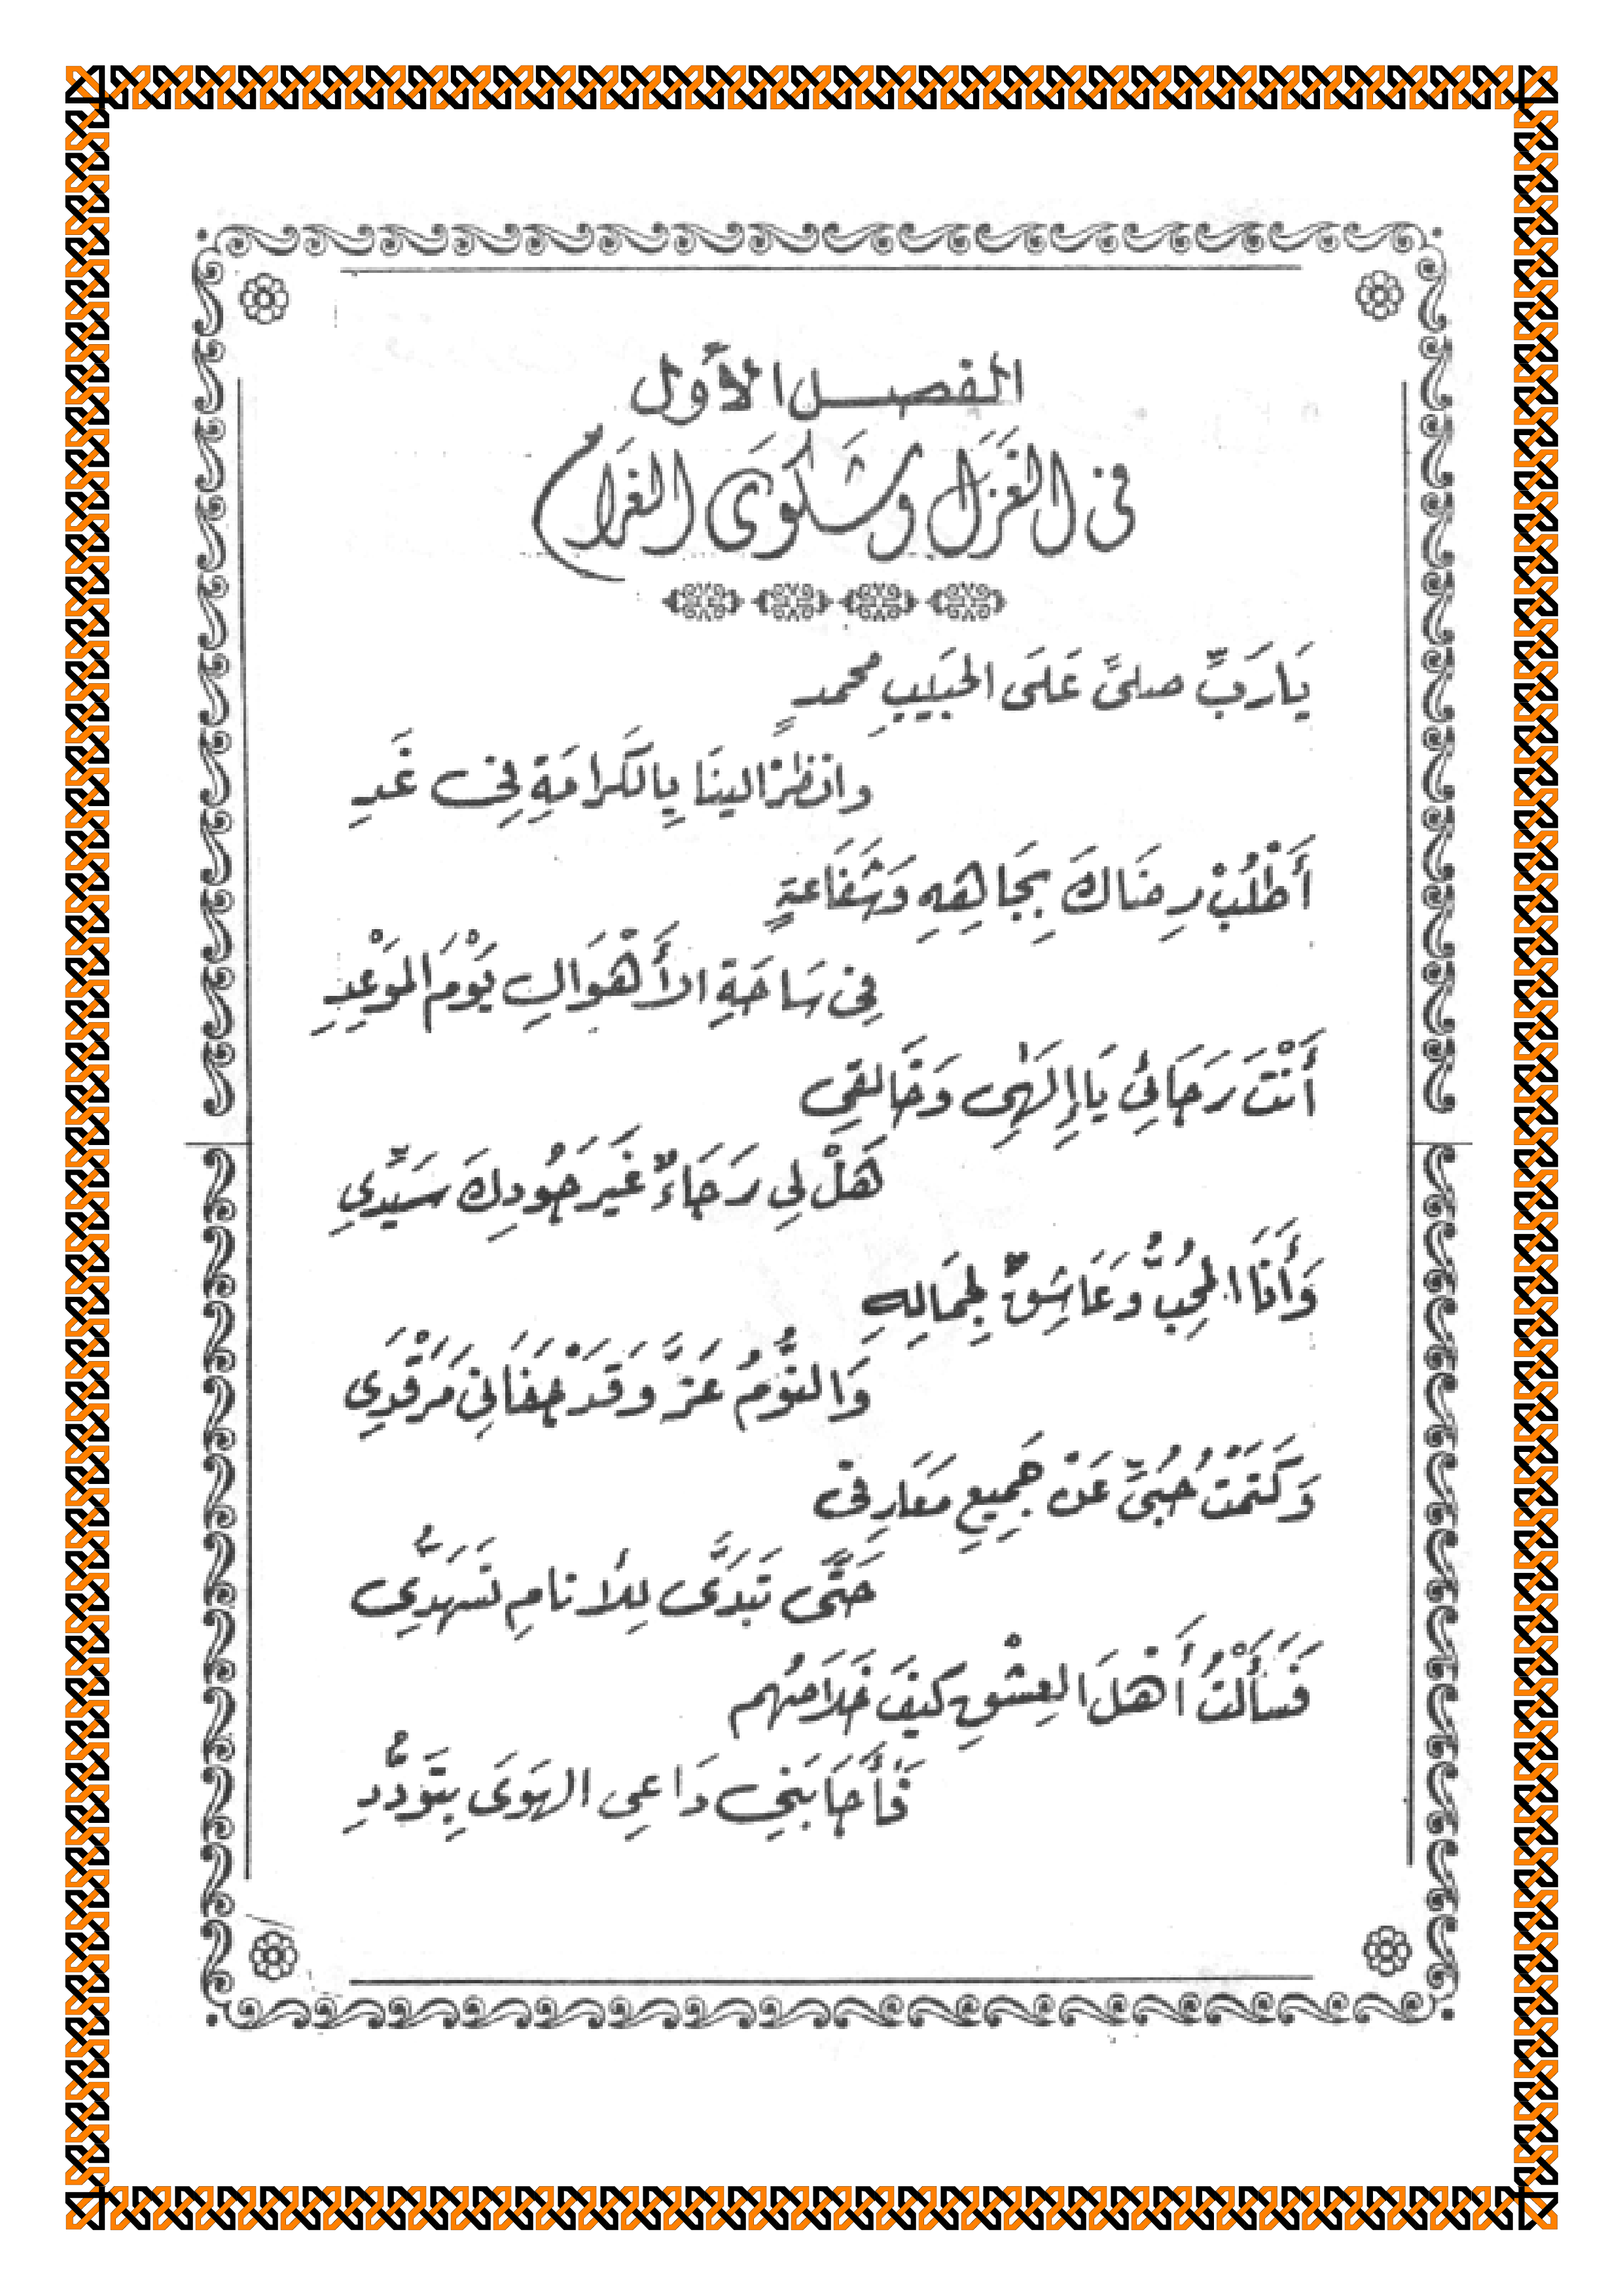 الفصل الأول
فى الغَزَل وشَكوَى الغرام
يَارَبِّ صلىِّ عَلَى الحَبيبِ محمدٍ
وانظرْ الينَا بِالكَرامَةِ فِى غَدِ
أَطْلُبْ رِضَاكَ بِجَاهِهِ وَشَفَاعةٍ
فِى سَاحَةِ الأَهْوَالِ يَوْمَ المَوْعِدِ
أَنْتَ رَجَائِى يَاإِلَهِى وَخَالقِى
هَلْ لِى رَجَاءٌ غَيرَ جُودِكَ سَيِّدِى
وَأَنَا المُحِبُّ وعَاشِقٌ لِجَمَالِهِ
وَالنَّوْمُ عَزَّ وَقَدْ جَفَانِى مَرْقَدِى
وَكَتَمْتُ حُبىِّ عَنْ جَمِيعِ مَعَارِفى
حَتَّى تَبَدَّى لِلأنامِ تَسَهُّدِى
فَسَأَلْتُ أَهْلَ العِشْقِ كيَفَ خَلاَصُهم
فَأَجَابَنِى دَاعِى الهَوَى بِتَوَدُّدِ